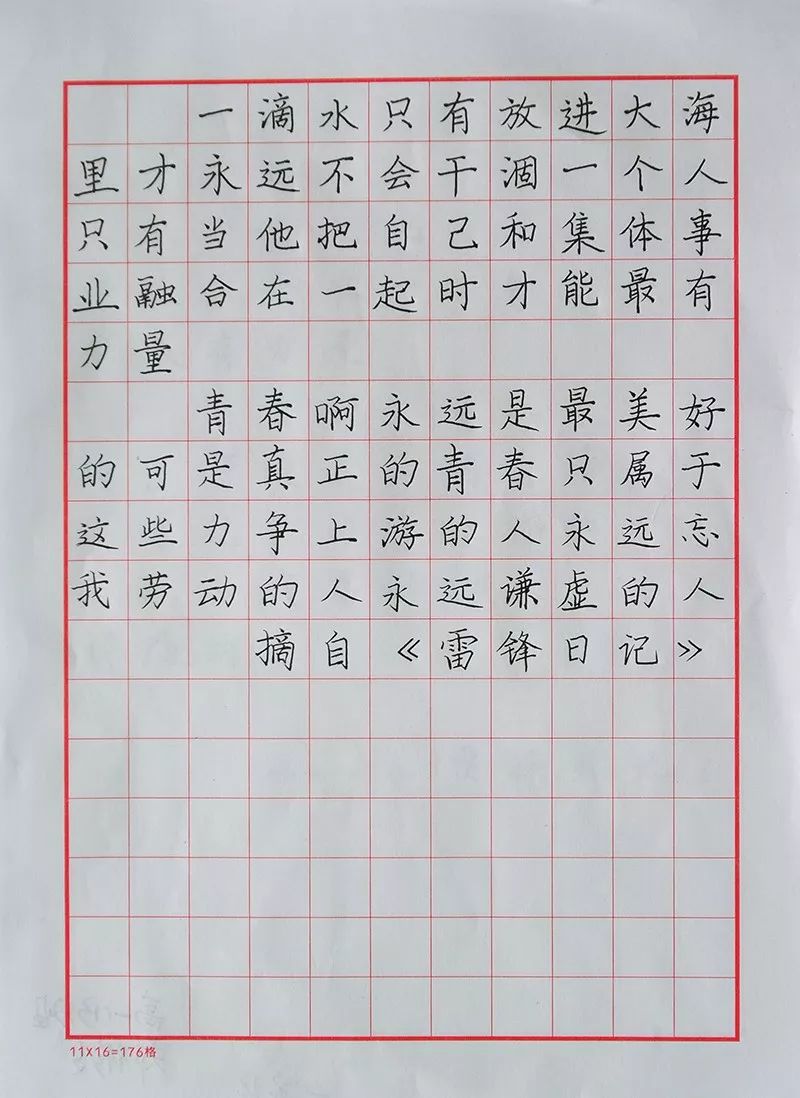 一滴水只有放进大海
里才永远不会干涸一个人
只有当他把自己和集体事
业融合在一起时才能最有
力量
青春啊永远是最美好
的可是真正的青春只属于
这些力争上游的人永远忘
我劳动的人永远谦虚的人
摘自《雷锋日记》
11X16=176格